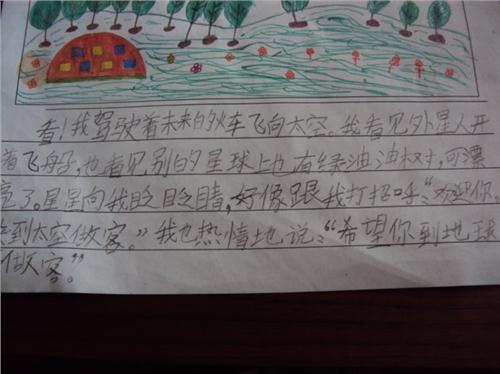 看！我驾驶着未来的火车飞向太空。我看见外星人开
着飞船，也看见别的星球上也有绿油油树，可漂
亮了。星星向我眨眨睛，好像跟我打招呼：“欢迎你
来到太空做客。”我也热情地说：“希望你到地球
做客。”